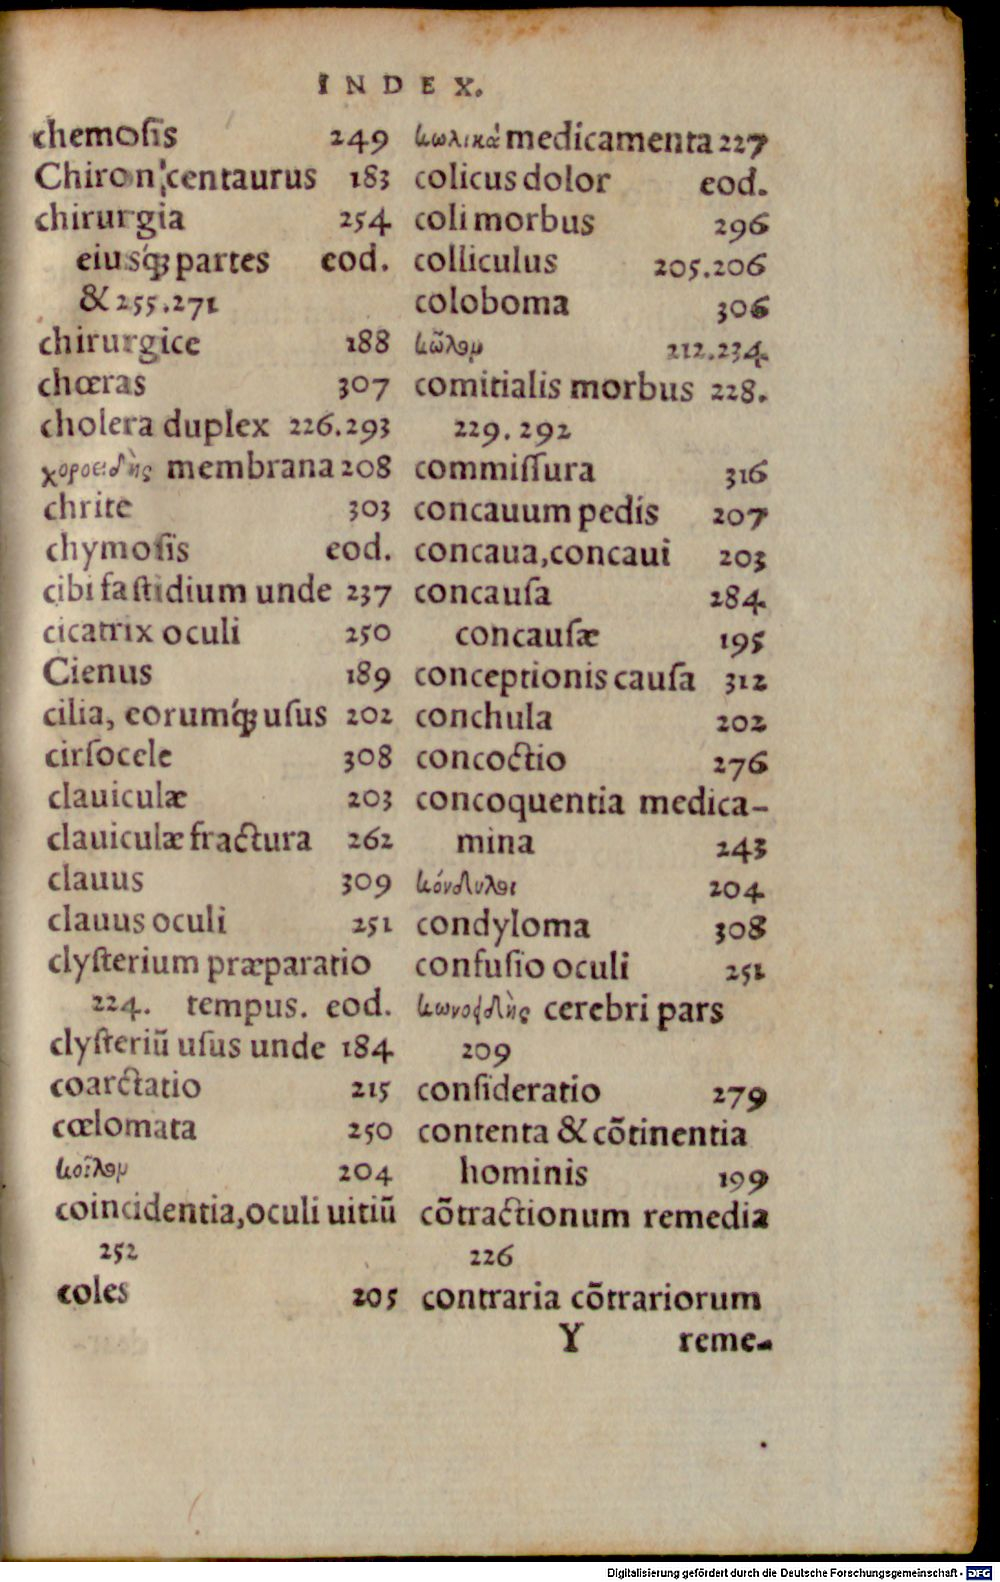 INDEX.
chemoſis 249
Chiron centaurus 183
chirurgia 254
eiusq́; partes eod.
& 255.271
chirurgice 188
chœras 307
cholera duplex 226.293
χοροειδὴς membrana 208
chrite 303
chymoſis eod.
cibi faſtidium unde 237
cicatrix oculi 250
Cienus 189
cilia, eorumq́; uſus 202
cirſocele 308
clauiculæ 203
clauiculæ fractura 262
clauus 309
clauus oculi 251
clyſterium præparatio
224. tempus. eod.
clyſteriũ uſus unde 184
coarctatio 215
cœlomata 250
κοῖλομ 204
coincidentia, oculi uitiũ
252
coles 205
κωλικὰ medicamenta 227
colicus dolor eod.
coli morbus 296
colliculus 205.206
coloboma 306
κῶλομ 212.234.
comitialis morbus 228.
229. 292
commiſſura 316
concauum pedis 207
concaua, concaui 203
concauſa 284
concauſæ 195
conceptionis cauſa 312
conchula 202
concoctio 276
concoquentia medica-
mina 243
κόνδυλοι 204
condyloma 308
confuſio oculi 251
κωνοειδὴς cerebri pars
209
conſideratio 279
contenta & cõtinentia
hominis 199
cõtractionum remedia
226
contraria cõtrariorum
Y reme-
Digitalisierung gefördert durch die Deutsche Forschungsgemeinschaft - DFG